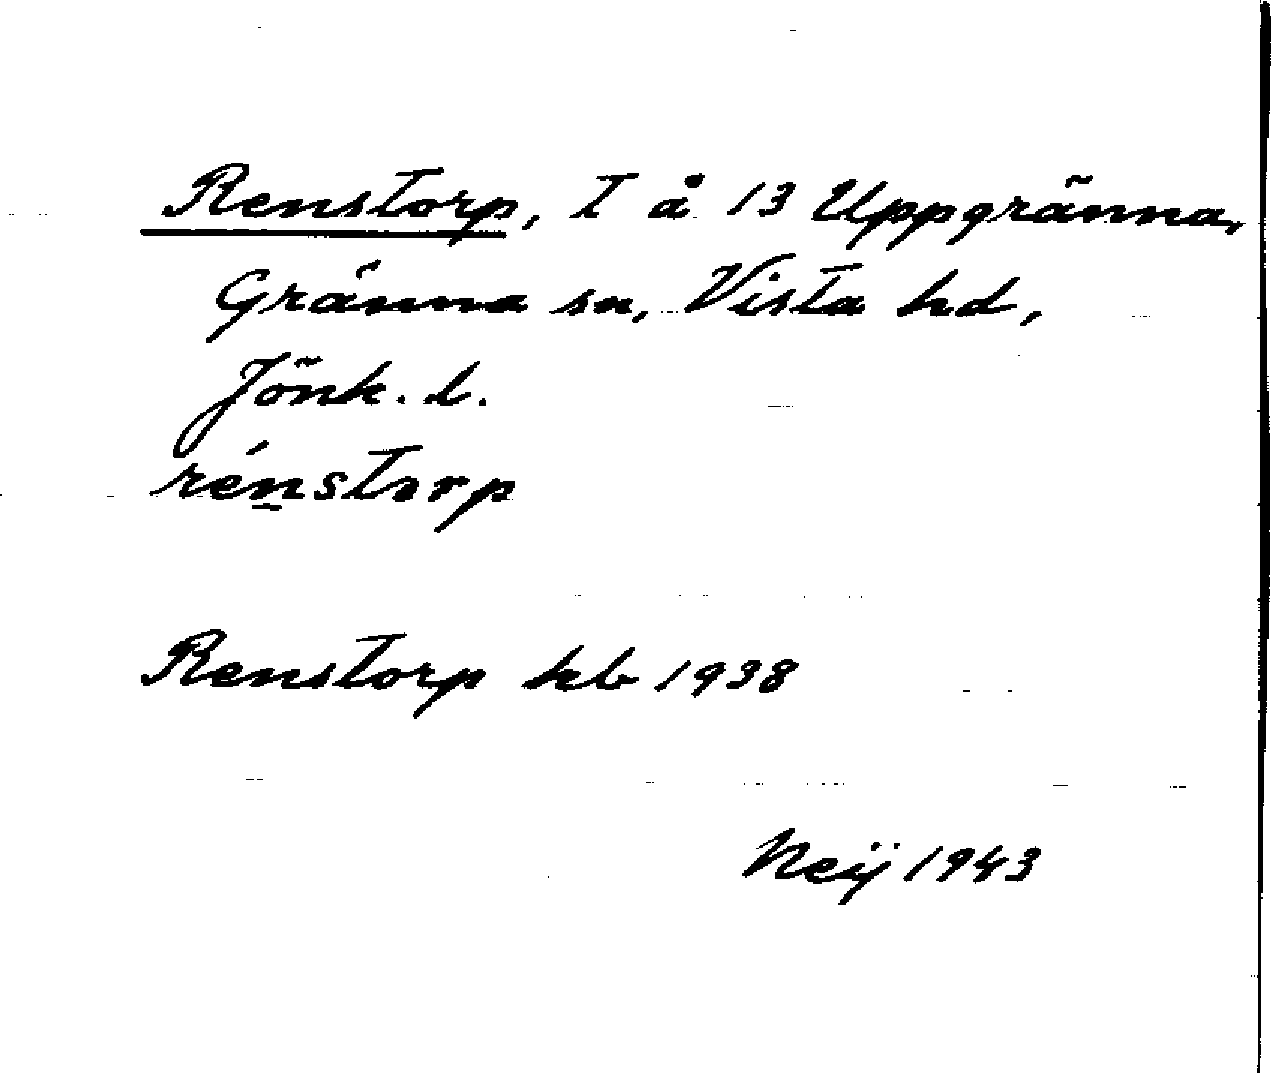 Renstorp, T å 13 Uppgränna,
Gränna sn, Vista hd,
Jönk. l.
rénstorp
Renstorp kb 1938
Neij 1943